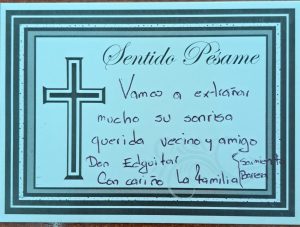 Sentido Pésame
Vamos a extrañar
mucho su sonrisa
querida vecino y amigo
Don Edguitar
Con cariño La familia Sarmiento